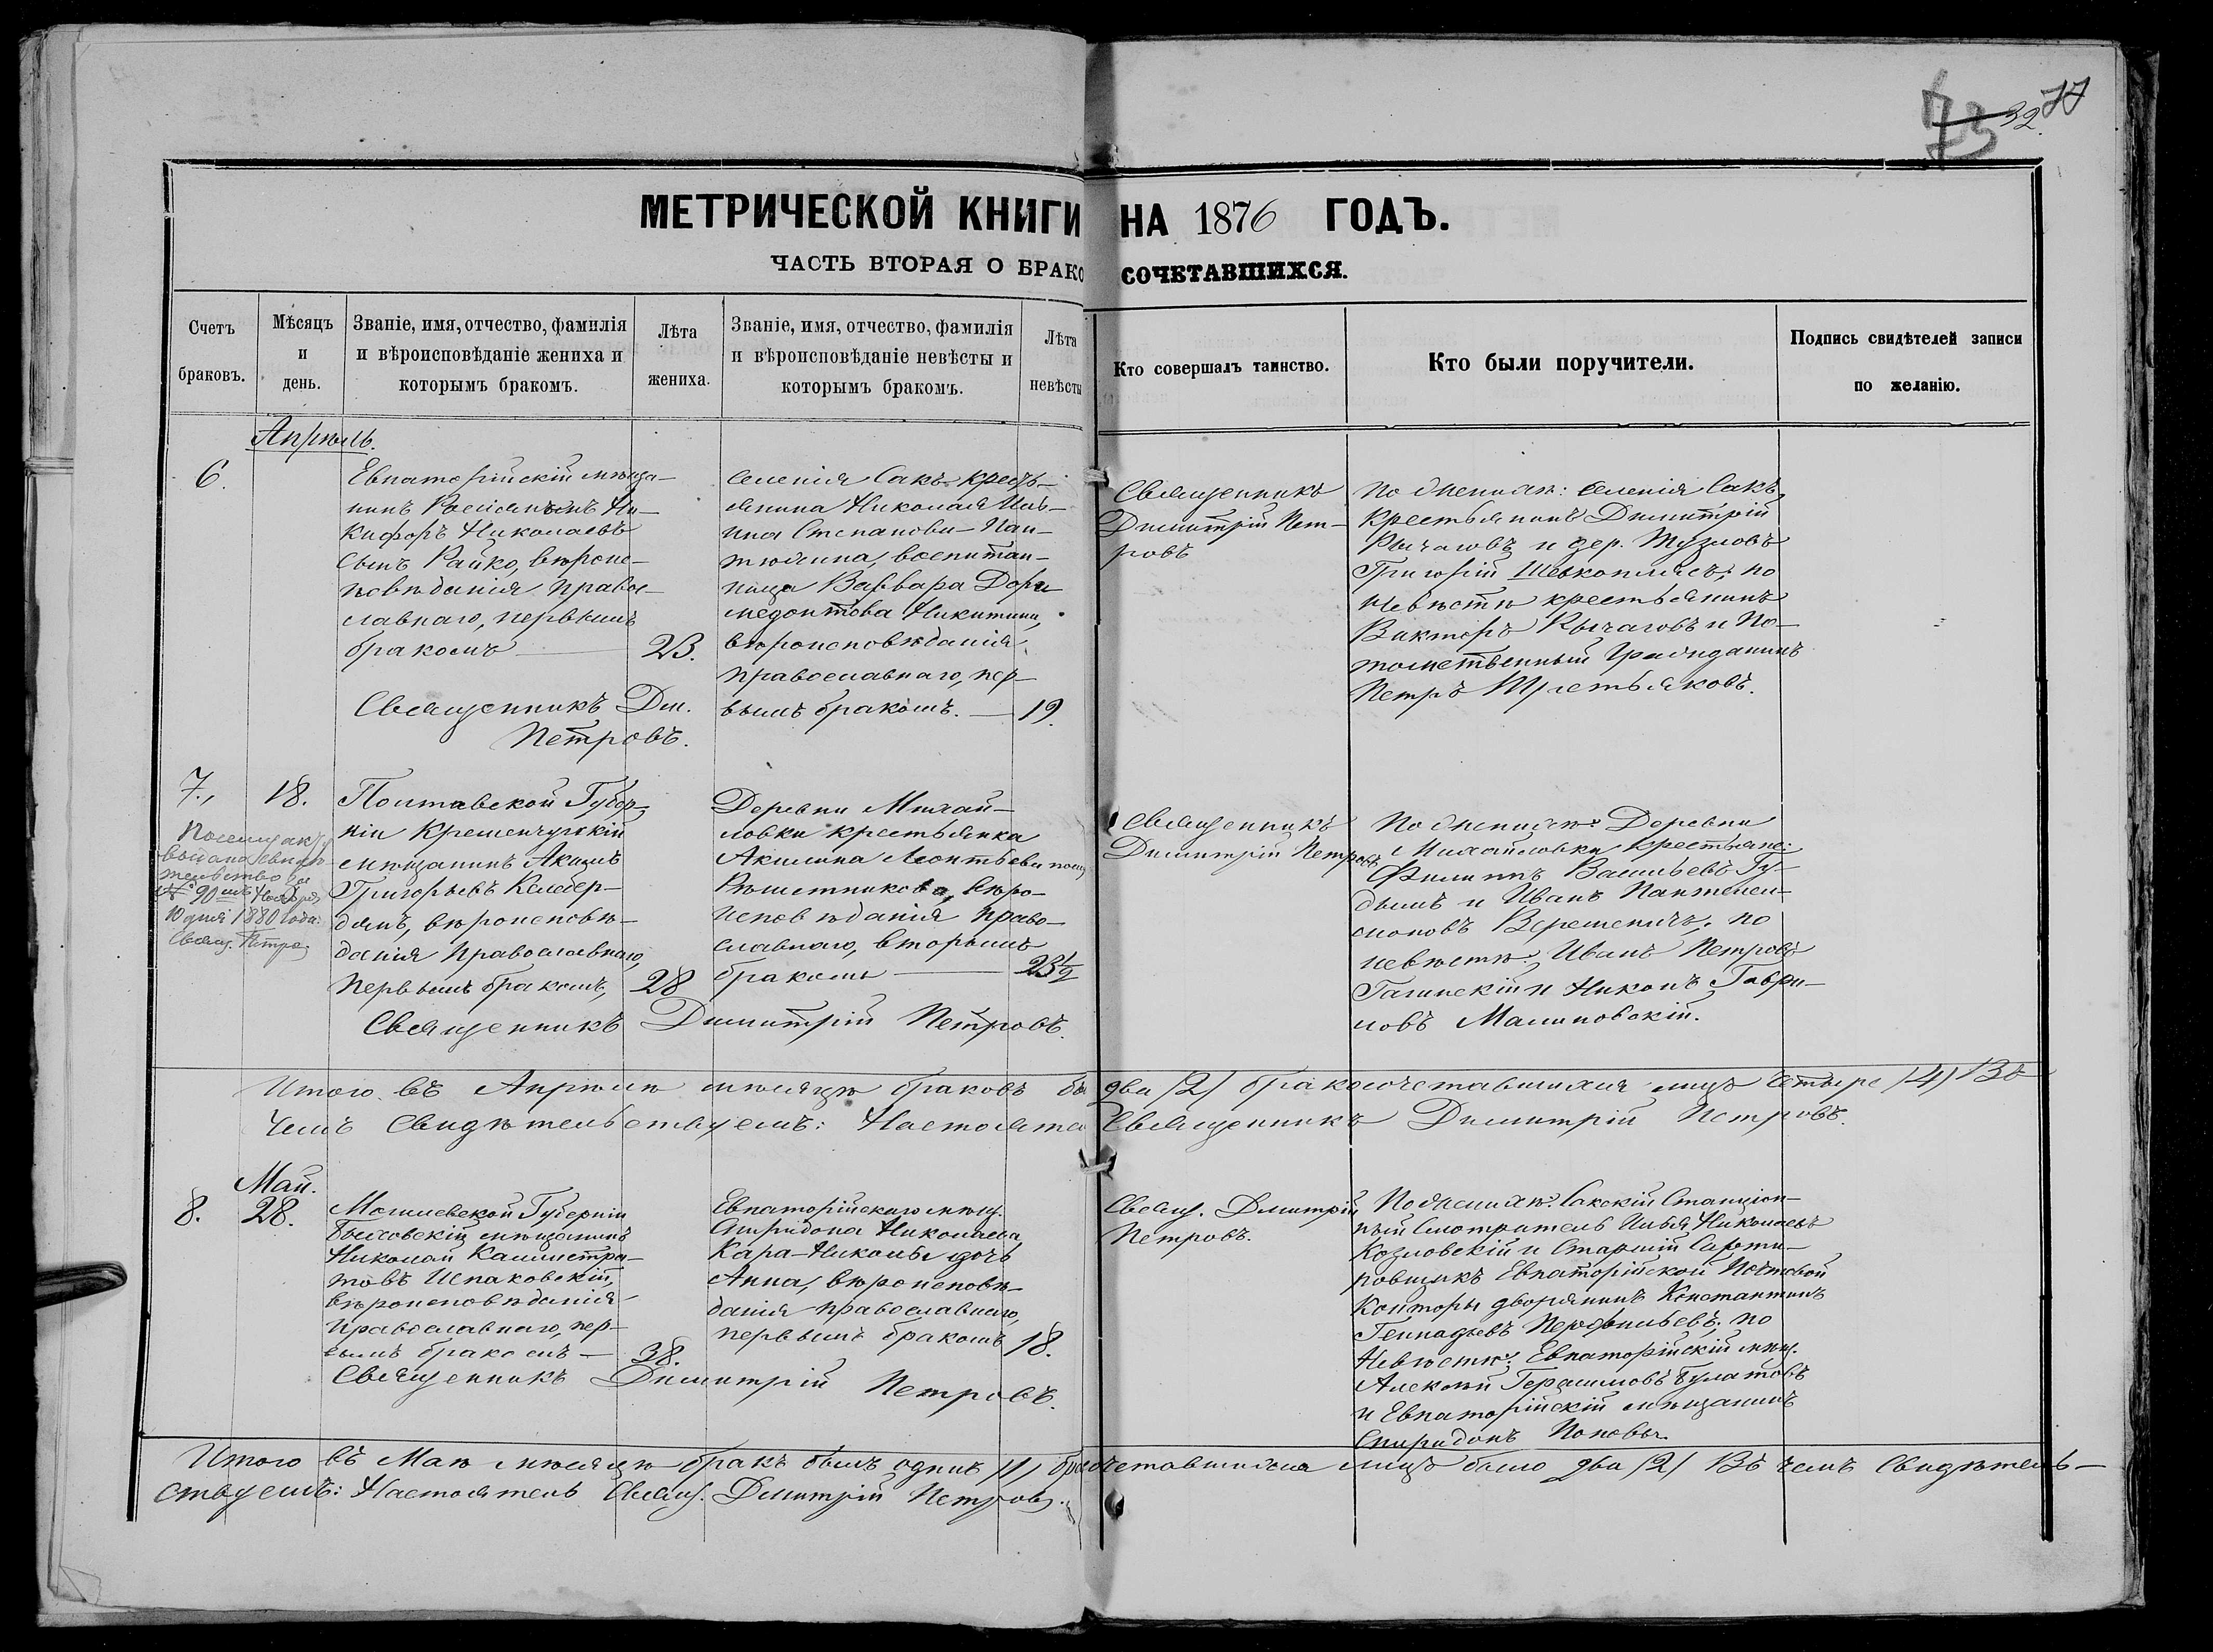 73 32. 77
МЕТРИЧЕСКОЙ КНИГИ НА 1876 ГОДЪ.
ЧАСТЬ ВТОРАЯ О БРАКОСОЧЕТАВШИХСЯ.
Счетъ браковъ.
Мѣсяцъ и день.
Званіе, имя, отчество, фамилія
и вѣроисповѣданіе жениха и
которымъ бракомъ.
Лѣта жениха.
Званіе, имя, отчество, фамилія
и вѣроисповѣданіе невѣсты и
которымъ бракомъ.
Лѣта невѣсты
Кто совершалъ таинство.
Кто были поручители.
Подпись свидѣтелей записи
по желанію.
Апрѣль.
6.
Евпаторійскій мѣща-
нинъ Ни-
кифоръ Николаевъ
сынъ Райко, вѣроис-
повѣданія право-
славнаго, первымъ
бракомъ
23.
Селенія Сакъ кресть-
янина Николая Иль-
ина Степанова Пан-
тюхина, воспитан-
ница Варвара Дори-
медонтова Никитина,
вѣроисповѣданія
православнаго, пер-
вымъ бракомъ.
19.
Священникъ Дм.
Петровъ.
Священникъ
Димитрій Пет-
ровъ
По женихѣ: Селенія Сакъ
крестьянинъ Димитрій
Рычаговъ и дер. Тузловъ
Григорій Шевкоплясъ; по
невѣстѣ крестьянинъ
Викторъ Рычаговъ и По-
томственный Гражданинъ
Петръ Третьяковъ.
7.,
18.
Посему акту
выдано свидѣ-
тельство за
№ 90 мъ Ноября
10 дня 1880 года.
Свящ. Петров
Полтавской Губер-
ніи Кременчугскій
мѣщанинъ Акимъ
Григорьевъ Келебер-
данъ, вѣроисповѣ-
данія православнаго,
первымъ бракомъ,
28
Деревни Михай-
ловки крестьянка
Акилина Леонтьева
Рѣшетникова, вѣро-
исповѣданія право-
славнаго, вторымъ
бракомъ
23½
Священникъ Димитрій Петровъ.
Священникъ
Димитрій Петровъ
По женихѣ: Деревни
Михайловки крестьяне:
Филиппъ Васильевъ Гу-
дымъ и Иванъ Пантелеи-
моновъ Веремеичъ; по
невѣстѣ: Иванъ Петровъ
Галинскій и Никонъ Гаври-
ловъ Малиновскій.
Итого въ Апрѣлѣ мѣсяцѣ браковъ бы два /2/ бракосочетавшихся лицъ четыре /4/ Въ
чемъ свидѣтельствуемъ: Настояте Священникъ Димитрій Петровъ.
Май.
8.
28.
Могилевской Губерніи
Быховскій мѣщанинъ
Николай Каллистра-
товъ Шпаковскій,
вѣроисповѣданія
православнаго, пер-
вымъ бракомъ
38.
Евпаторійскаго мѣщ.
Спиридона Николаева
Кара-Николы дочь
Анна, вѣроисповѣ-
данія православнаго,
первымъ бракомъ
18.
Священникъ Димитрій Петровъ.
Свящ. Димитрій
Петровъ.
По женихѣ: Сакскій Станціон-
ный Смотритель Илья Николаевъ
Козловскій и Старшій Сорти-
ровщикъ Евпаторійской Почтовой
Конторы дворянинъ Константинъ
Геннадьевъ Перфильевъ; по
невѣстѣ: Евпаторійскій мѣщ.
Алексѣй Герасимовъ Булатовъ
и Евпаторійскій мѣщанинъ
Спиридонъ Поповъ.
Итого въ Маѣ мѣсяцѣ бракъ былъ одинъ /1/ бракосочетавшихся лицъ было два /2/ Въ чемъ свидѣтель-
ствуемъ: Настоятель Свящ. Димитрій Петровъ.